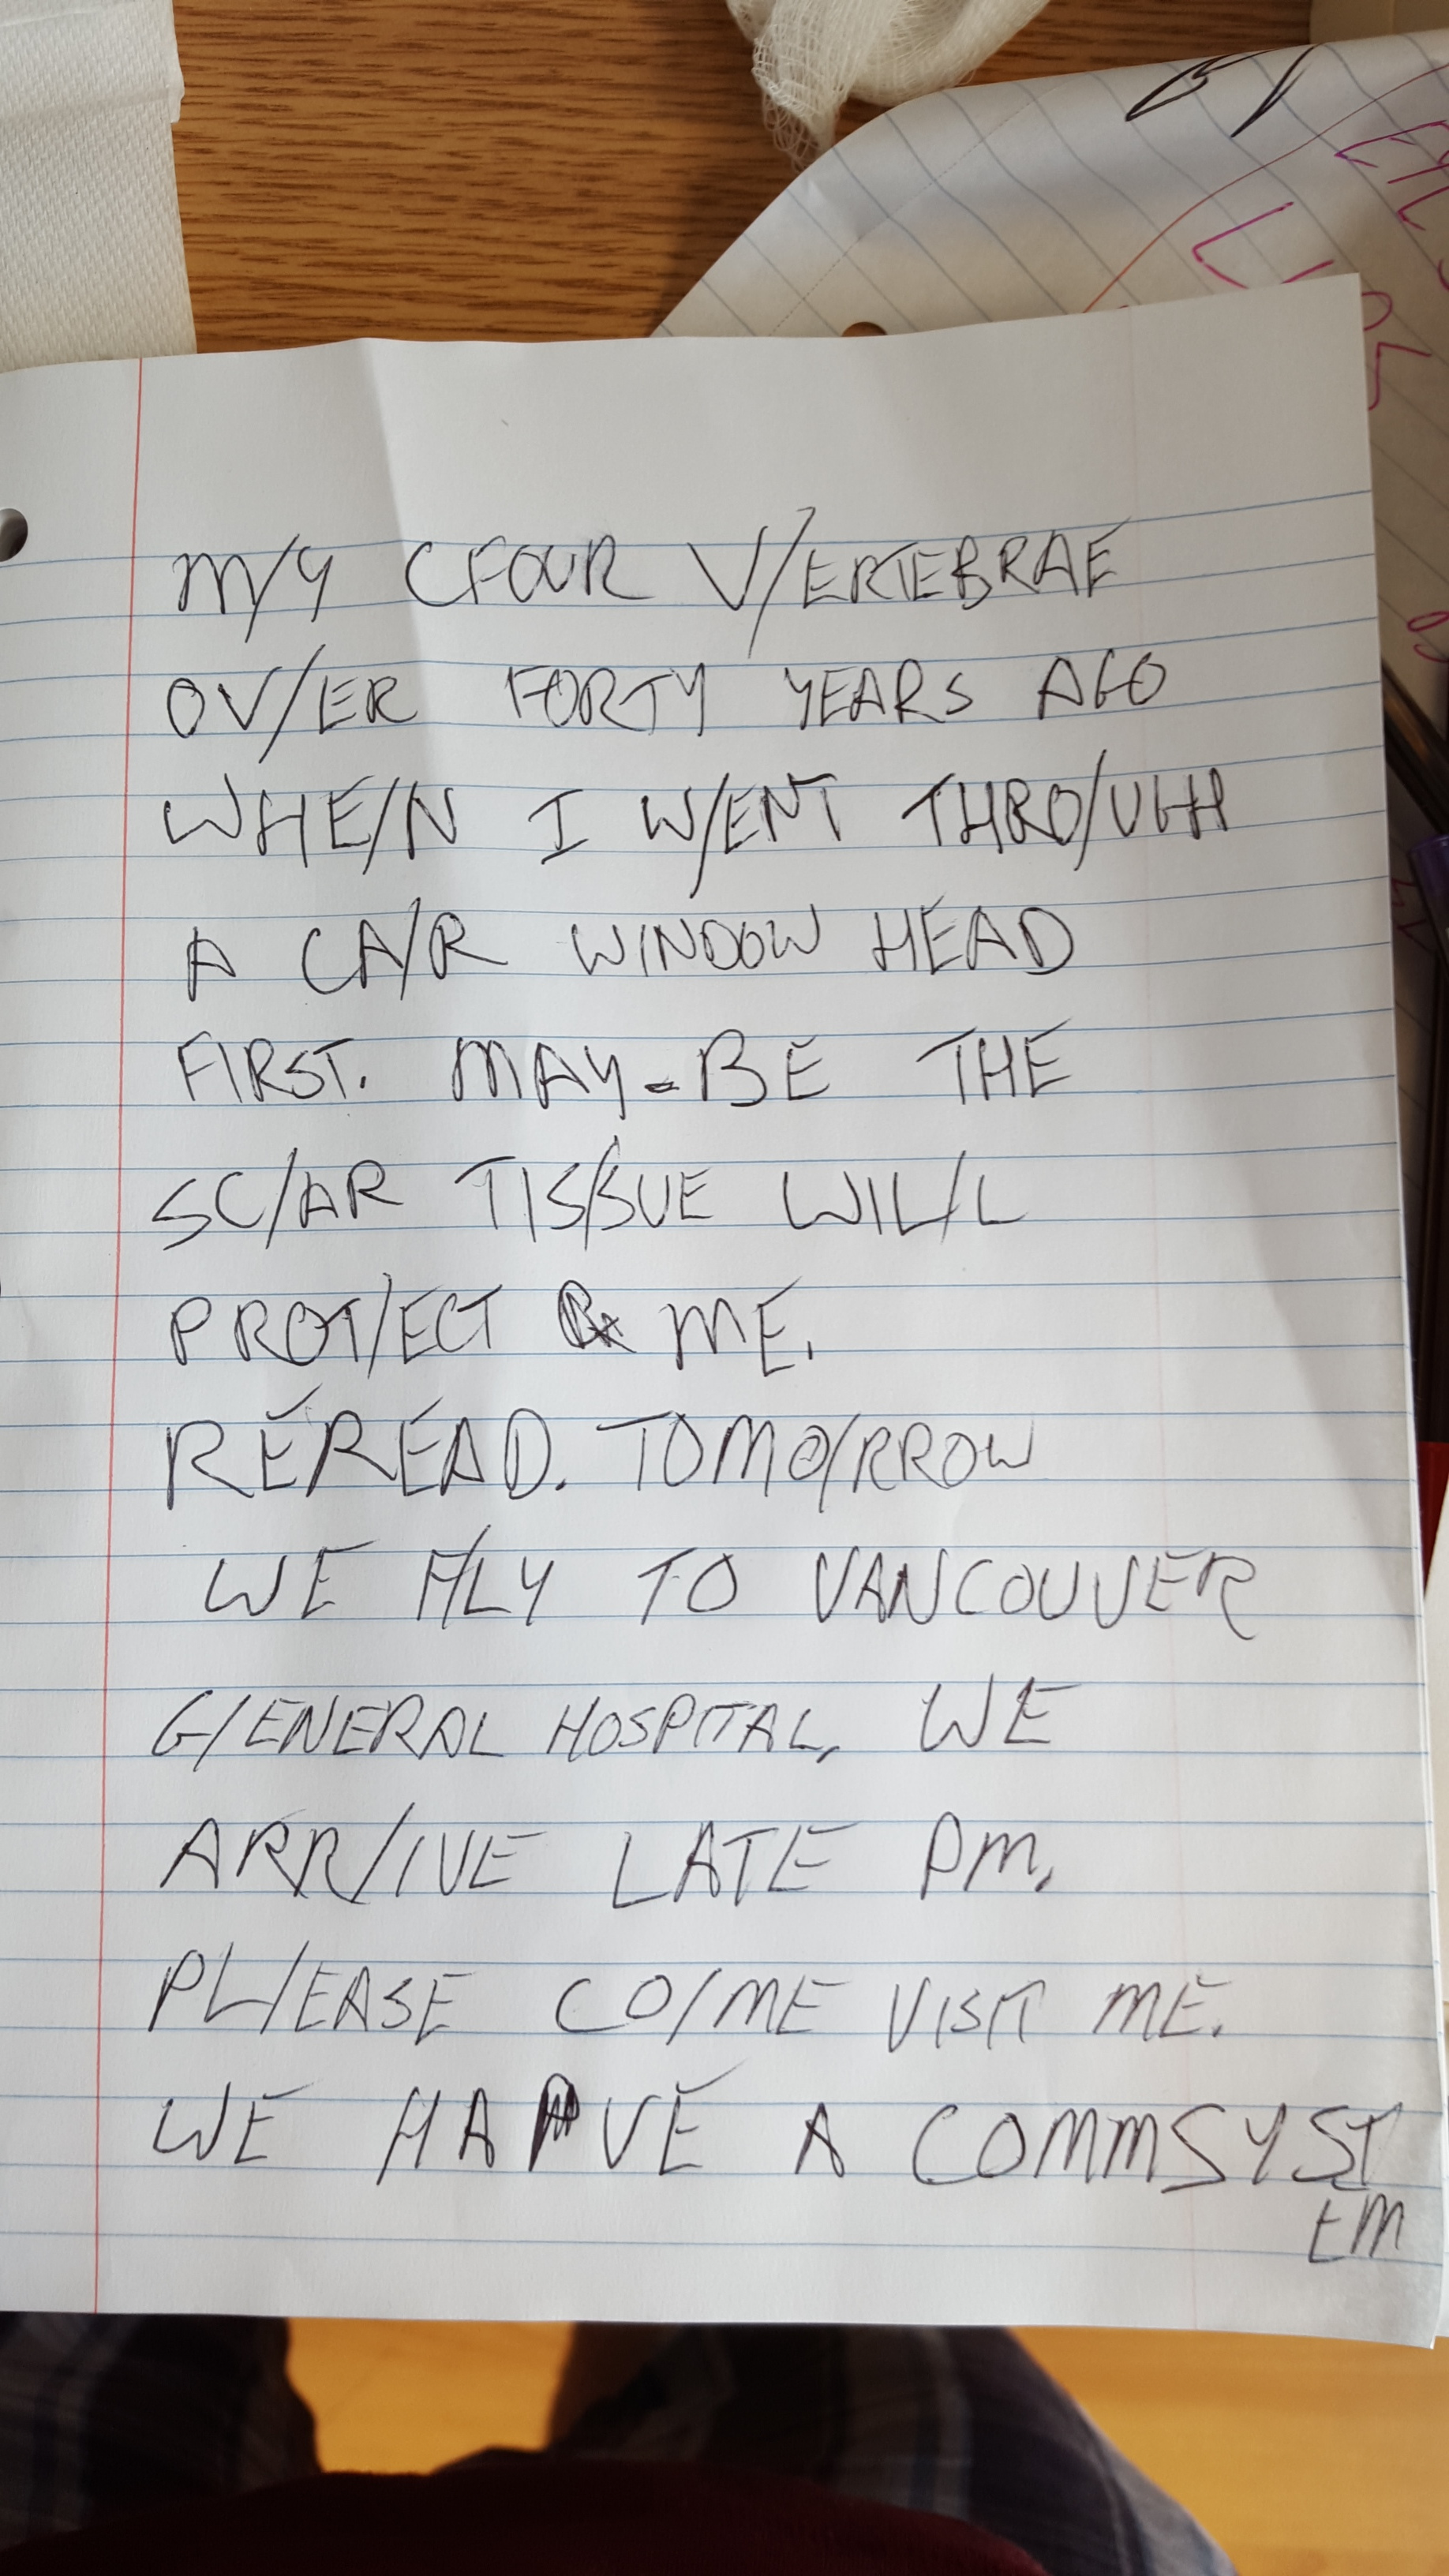 M/Y CFOUR V/ERTEBRAE
OV/ER FORTY YEARS AGO
WHE/N I W/ENT THRO/UGH
A CA/R WINDOW HEAD
FIRST. MAY-BE THE
SC/AR TIS/SUE WIL/L
PROT/ECT ME.
RE/READ. TOMO/RROW
WE F/LY TO VANCOUVER
G/ENERAL HOSPITAL. WE
ARR/IVE LATE PM.
PL/EASE CO/ME VISIT ME.
WE HAVE A COMMSYST
EM